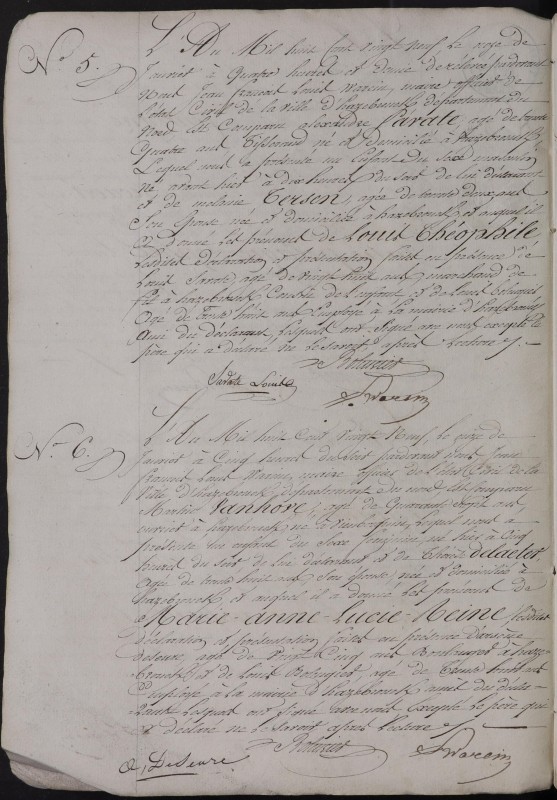 N.° 5.
L'An Mil huit Cent vingt neuf, le onze de
Janvier à quatre heures et demie de relevée pardevant
nous Jean francois Louis Warein, maire officier de
l'état Civil de la ville d'hazebrouck departement du
Nord est Comparu alexandre Savaete, agé de trente
quatre ans Tisserand né et domicilié à hazebrouck
Lequel nous a présenté un Enfant du Sexe masculin
né avant hier à dix heures du soir de lui déclarant
et de melanie Tersen, agée de trente deux ans
Son épouse née et domiciliée à hazebrouck, et auquel il
a donné les prénoms de Louis Théophile
Lesdites déclaration et présentation faites en présence de
Louis Savaete, agé de vingt huit ans marchand de
à hazebrouck de l'enfant, et de Louis Bolugiet
agé de trente huit ans Employé à la mairie d'hazebrouck
ami du déclarant, lesquels ont signé avec nous excepté le
père qui a déclaré ne le savoir après lecture.
Bolugiet
Savaete Louis
L. Warein
N.° 6.
L'An Mil huit Cent vingt Neuf, le onze de
Janvier à Cinq heures du soir pardevant nous Jean
francois Louis Warein, maire officier de l'état Civil de la
Ville d'hazebrouck, département du nord est Comparu
Martin Vanhove, agé de Quarante ans
ouvrier à hazebrouck, né à vieux-Berquin, lequel nous a
présenté un enfant du Sexe féminin, né hier à Cinq
heures du soir de lui déclarant et de Delaeter
agée de trente huit ans Son épouse, née et domiciliée à
hazebrouck, et auquel il a donné les prénoms de
Marie-anne-Lucie-Reine, lesdites
déclaration et présentation faites en présence d'
deseure, agé de vingt Cinq ans à haze-
brouck et de Louis Bolugiet, agé de Trente huit ans
Employé a la mairie d'hazebrouck amis du décla-
rant lesquels ont signé avec nous excepté le père qui
a déclaré ne le savoir après lecture.
Bolugiet
L. Warein
DeSeure.